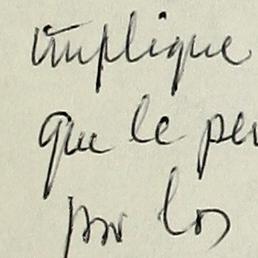 implique
que le per
por los